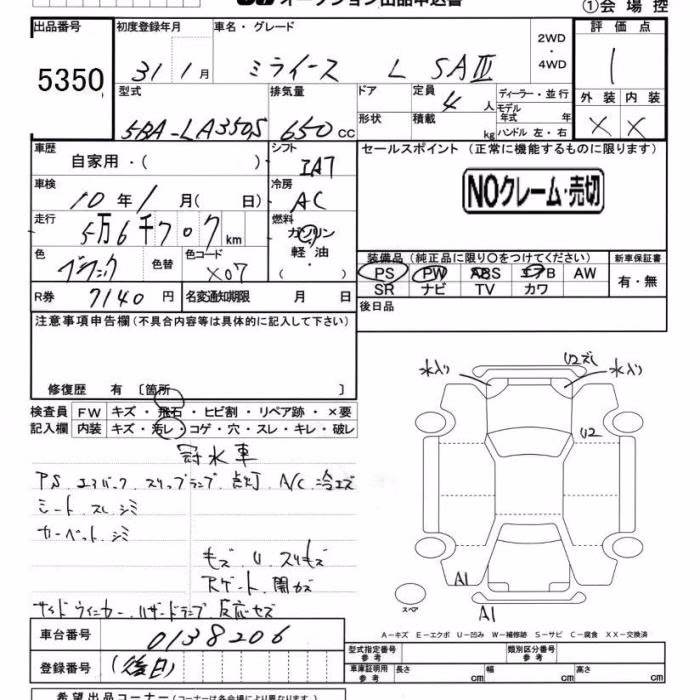 オークション出品申込書 ①会場控
出品番号 初度登録年月 車名・グレード 2WD・4WD 評価点
5350 31 1月 ミライース L SAⅢ 1
型式 排気量 ドア 定員 4人 ディーラー・並行 外装 内装
5BA-LA350S 650cc 形状 積載 kg モデル年式 年 ハンドル 左・右 × ×
車歴 自家用・( ) シフト IAT セールスポイント(正常に機能するものに限ります)
車検 10年1月( 日) 冷房 AC NOクレーム・売切
走行 5万6千707km 燃料 ガソリン 軽油・( )
色 ブラック 色替 色コード X07 装備品(純正品に限り○をつけてください) 新車保証書
PS PW ABS エアB AW 有・無
SR ナビ TV カワ
R券 7140円 名変通知期限 月 日 後日品
注意事項申告欄(不具合内容等は具体的に記入して下さい)
修復歴 有 〔箇所 〕
検査員 FW キズ・飛石・ヒビ割・リペア跡・×要
記入欄 内装 キズ・汚レ・コゲ・穴・スレ・キレ・破レ
冠水車
PS エアバック スリップランプ 点灯 A/C 冷エズ
シート スレ シミ
カーペット シミ
キズ U スリキズ
Rゲート 開かズ
サイドウィンカー ハザードランプ 反応セズ
水入り 水入り U2ズレ
U2
A1
A1
スペア
A−キズ E−エクボ U−凹み W−補修跡 S−サビ C−腐食 XX−交換済
車台番号 0138206 型式指定番号 参考 類別区分番号 参考
登録番号 (後日) 車庫証明用 参考 長さ cm 幅 cm 高さ cm
希望出品コーナー(コーナーは各会場により異なります)